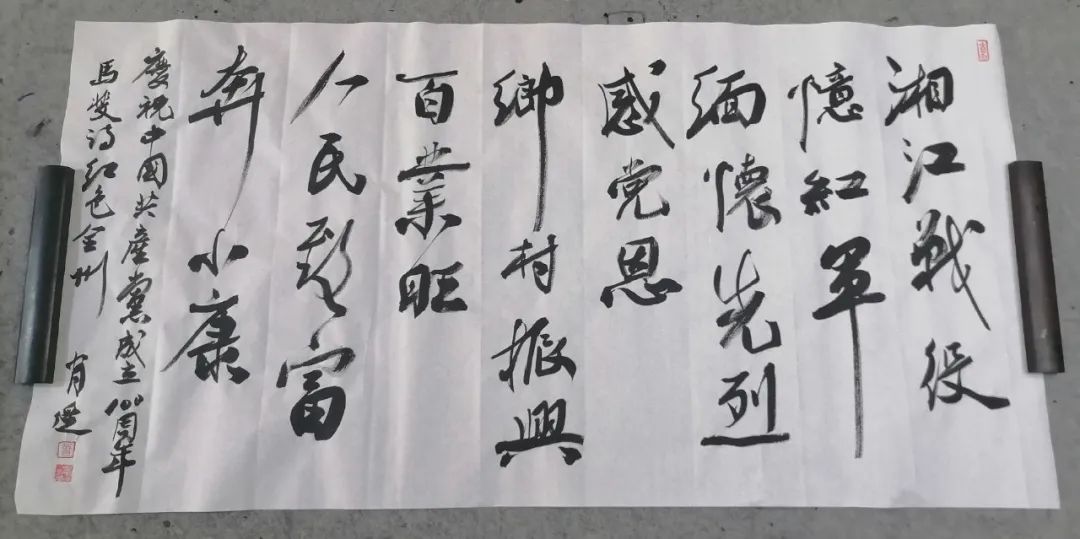 湘江戰役
憶紅軍
緬懷先烈
感党恩
鄉村振興
百業旺
人民致富
奔小康
慶祝中國共產黨成立100周年
馬𤼵诗红色全州
有选